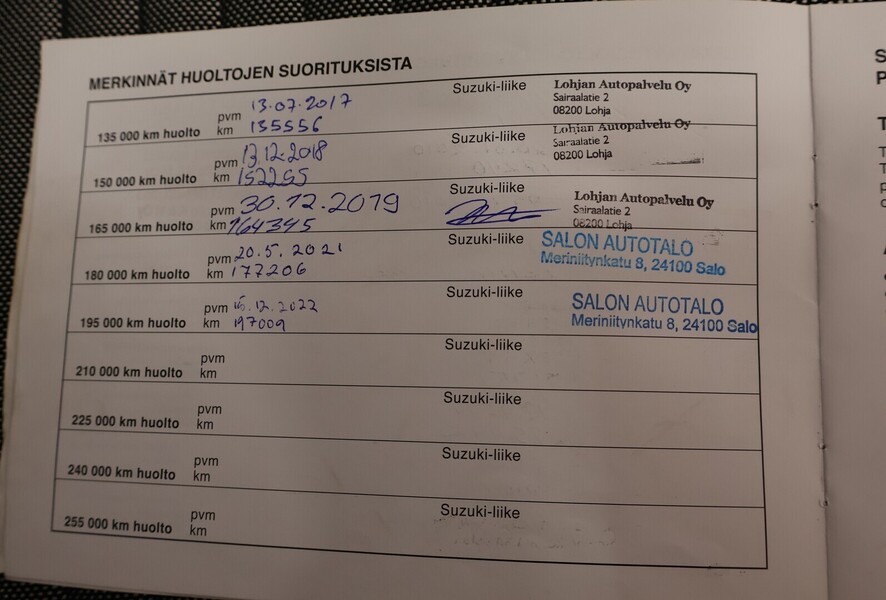 MERKINNÄT HUOLTOJEN SUORITUKSISTA
135 000 km huolto pvm 13.07.2017 Suzuki-liike Lohjan Autopalvelu Oy
km 135556 Sairaalatie 2
08200 Lohja
150 000 km huolto pvm 13.12.2018 Suzuki-liike Lohjan Autopalvelu Oy
km 152255 Sairaalatie 2
08200 Lohja
165 000 km huolto pvm 30.12.2019 Suzuki-liike Lohjan Autopalvelu Oy
km 164345 Sairaalatie 2
08200 Lohja
180 000 km huolto pvm 20.5.2021 Suzuki-liike SALON AUTOTALO
km 177206 Meriniitynkatu 8, 24100 Salo
195 000 km huolto pvm 15.12.2022 Suzuki-liike SALON AUTOTALO
km 197009 Meriniitynkatu 8, 24100 Salo
210 000 km huolto pvm Suzuki-liike
km
225 000 km huolto pvm Suzuki-liike
km
240 000 km huolto pvm Suzuki-liike
km
255 000 km huolto pvm Suzuki-liike
km